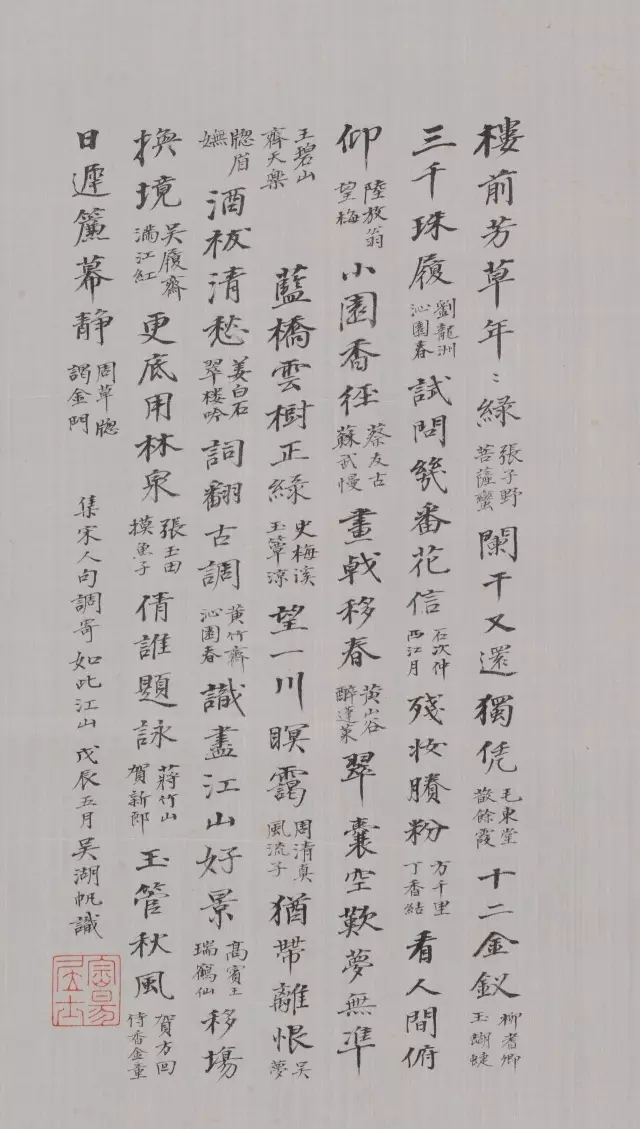 樓前芳草年〻綠張子野菩薩蠻闌干又還獨凭毛東堂散餘霞十二金釵柳耆卿玉蝴蝶
三千珠履劉龍洲沁園春試問幾番花信石次仲西江月殘妝賸粉方千里丁香結看人間俯
仰陸放翁望梅小園香徑蔡友古蘇武慢畫戟移春黃山谷醉蓬萊翠囊空歎夢無準
王碧山齊天樂藍橋雲樹正綠史梅溪玉簟涼望一川暝靄周清真風流子猶帶離恨吳夢
牕眉嫵酒祓清愁姜白石翠樓吟詞翻古調黃竹齋沁園春識盡江山好景高賓王瑞鶴仙移場
換境吳履齋滿江紅更底用林泉張玉田摸魚子倩誰題詠蔣竹山賀新郎玉管秋風賀方回侍香金童
日遲簾幕靜周草牕謁金門集宋人句調寄如此江山戊辰五月吳湖帆識